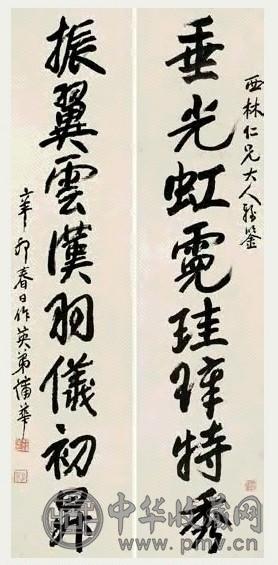 西林仁兄大人雅鉴
垂光虹霓珪璋特秀
振翼雲漢羽儀初昇
辛卯春日作英弟蒲華
中华收藏网
www.pmv.cn